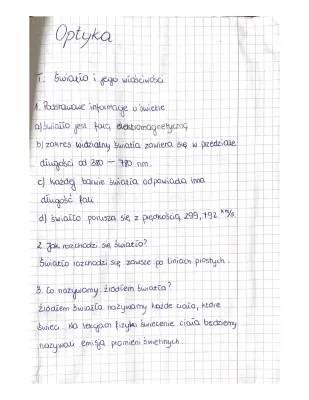 Optyka
I. Światło i jego właściwości
1. Podstawowe informacje o świetle
a) światło jest falą elektromagnetyczną
b) zakres widzialny światła zawiera się w przedziale
długości od 380 — 780 nm.
c) każdej barwie światła odpowiada inna
długość fali.
d) światło porusza się z prędkością 299,792 km/s
2. Jak rozchodzi się światło?
Światło rozchodzi się zawsze po liniach prostych.
3. Co nazywamy źródłem światła?
Źródłem światła nazywamy każde ciało, które
świeci. Na lekcjach fizyki świecenie ciała będziemy
nazywali emisją promieni świetlnych.